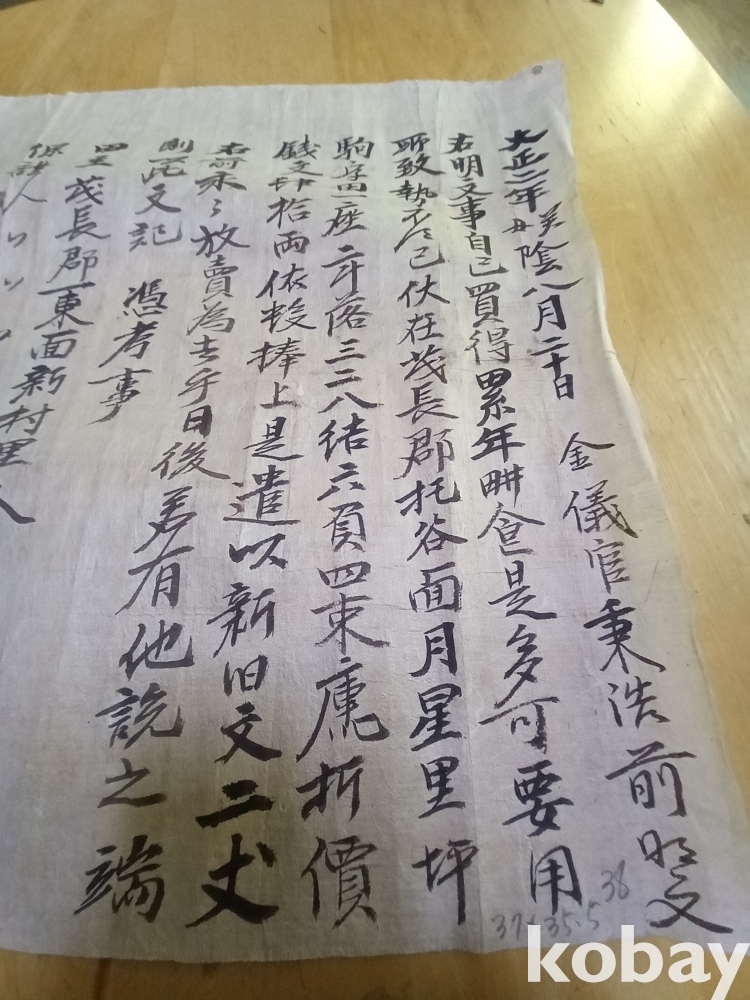 大正二年癸丑陰八月二十日 金儀官秉浩前明文
右明文事自己買得累年耕食是多可要用
所致勢不得已伏在茂長郡托谷面月星里坪
駒字畓一座二斗落三二八結六負四束庫折價
錢文拾兩依數捧上是遣以新旧文二丈
右前永々放賣為去乎日後若有他說之端
則此文記 憑考事
畓主茂長郡一東面新村里
保證人
37×35.5
38
kobay